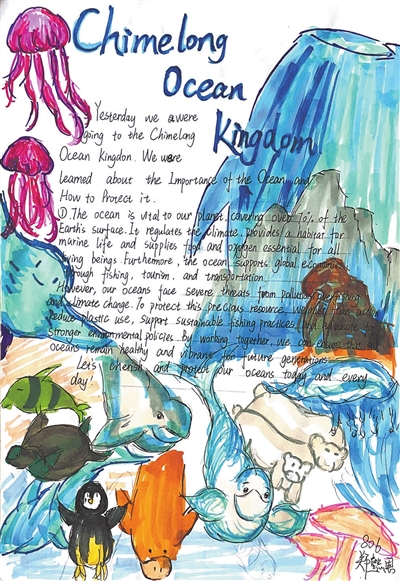 Chimelong
Ocean
Kingdom
Yesterday we were
going to the Chimelong
Ocean Kingdon. We were
learned about the Importance of the Ocean and
How to Protect it.
①.The ocean is vital to our planet, covering over 70% of the
Earth's surface. It regulates the climate, provides a habitat for
marine life and supplies food and oxygen essential for all
living beings. Furthemore, the ocean supports global economies
through fishing, tourism, and transportation.
However, our oceans face severe threats from pollution,
and climate change. To protect this precious resource, we must take action
Reduce plastic use, support sustainable fishing practices, and advocate for
stronger environmental policies. By working together, we can ensure that our
oceans remain healthy and vibrant for future generations.
Let's cherish and protect our oceans today and every
day!
806